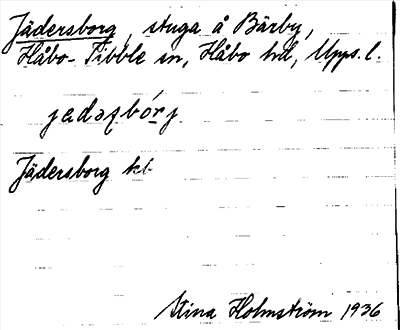 Jädersborg, stuga å Bärby,
Håbo-Tibble sn, Håbo hd, Upps. l.
jädəʂbórj.
Jädersborg kb
Stina Holmström 1936